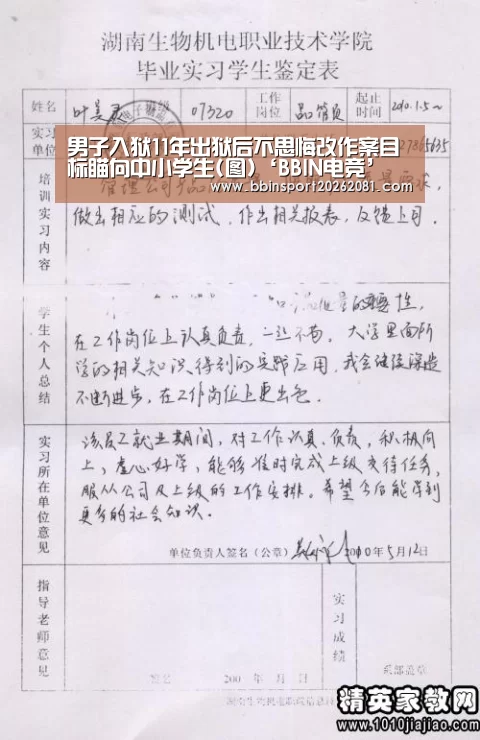 湖南生物机电职业技术学院
毕业实习学生鉴定表
姓名
07320
工作岗位
品管员
起止时间
2010.1.5~
实习单位
5635
男子入狱11年出狱后不思悔改作案目
标瞄向中小学生(图)‘BBIN电竞’
www.bbinsport20262081.com
培训实习内容
做出相应的测试,作出相关报表,反馈上司.
学生个人总结
的重要性,
在工作岗位上认真负责,一丝不苟,大学里面所
学的相关知识得到的实践应用,我会继续深造
不断进步,在工作岗位上更出色.
实习所在单位意见
该员工就业期间,对工作认真、负责,积极向
上,虚心好学,能够准时完成上级交待任务,
服从公司及上级的工作安排。希望今后能学到
更多的社会知识.
单位负责人签名(公章)
2010年5月12日
指导老师意见
签名
200 年 月 日
实习成绩
系部盖章
精英家教网
www.1010jiajiao.com